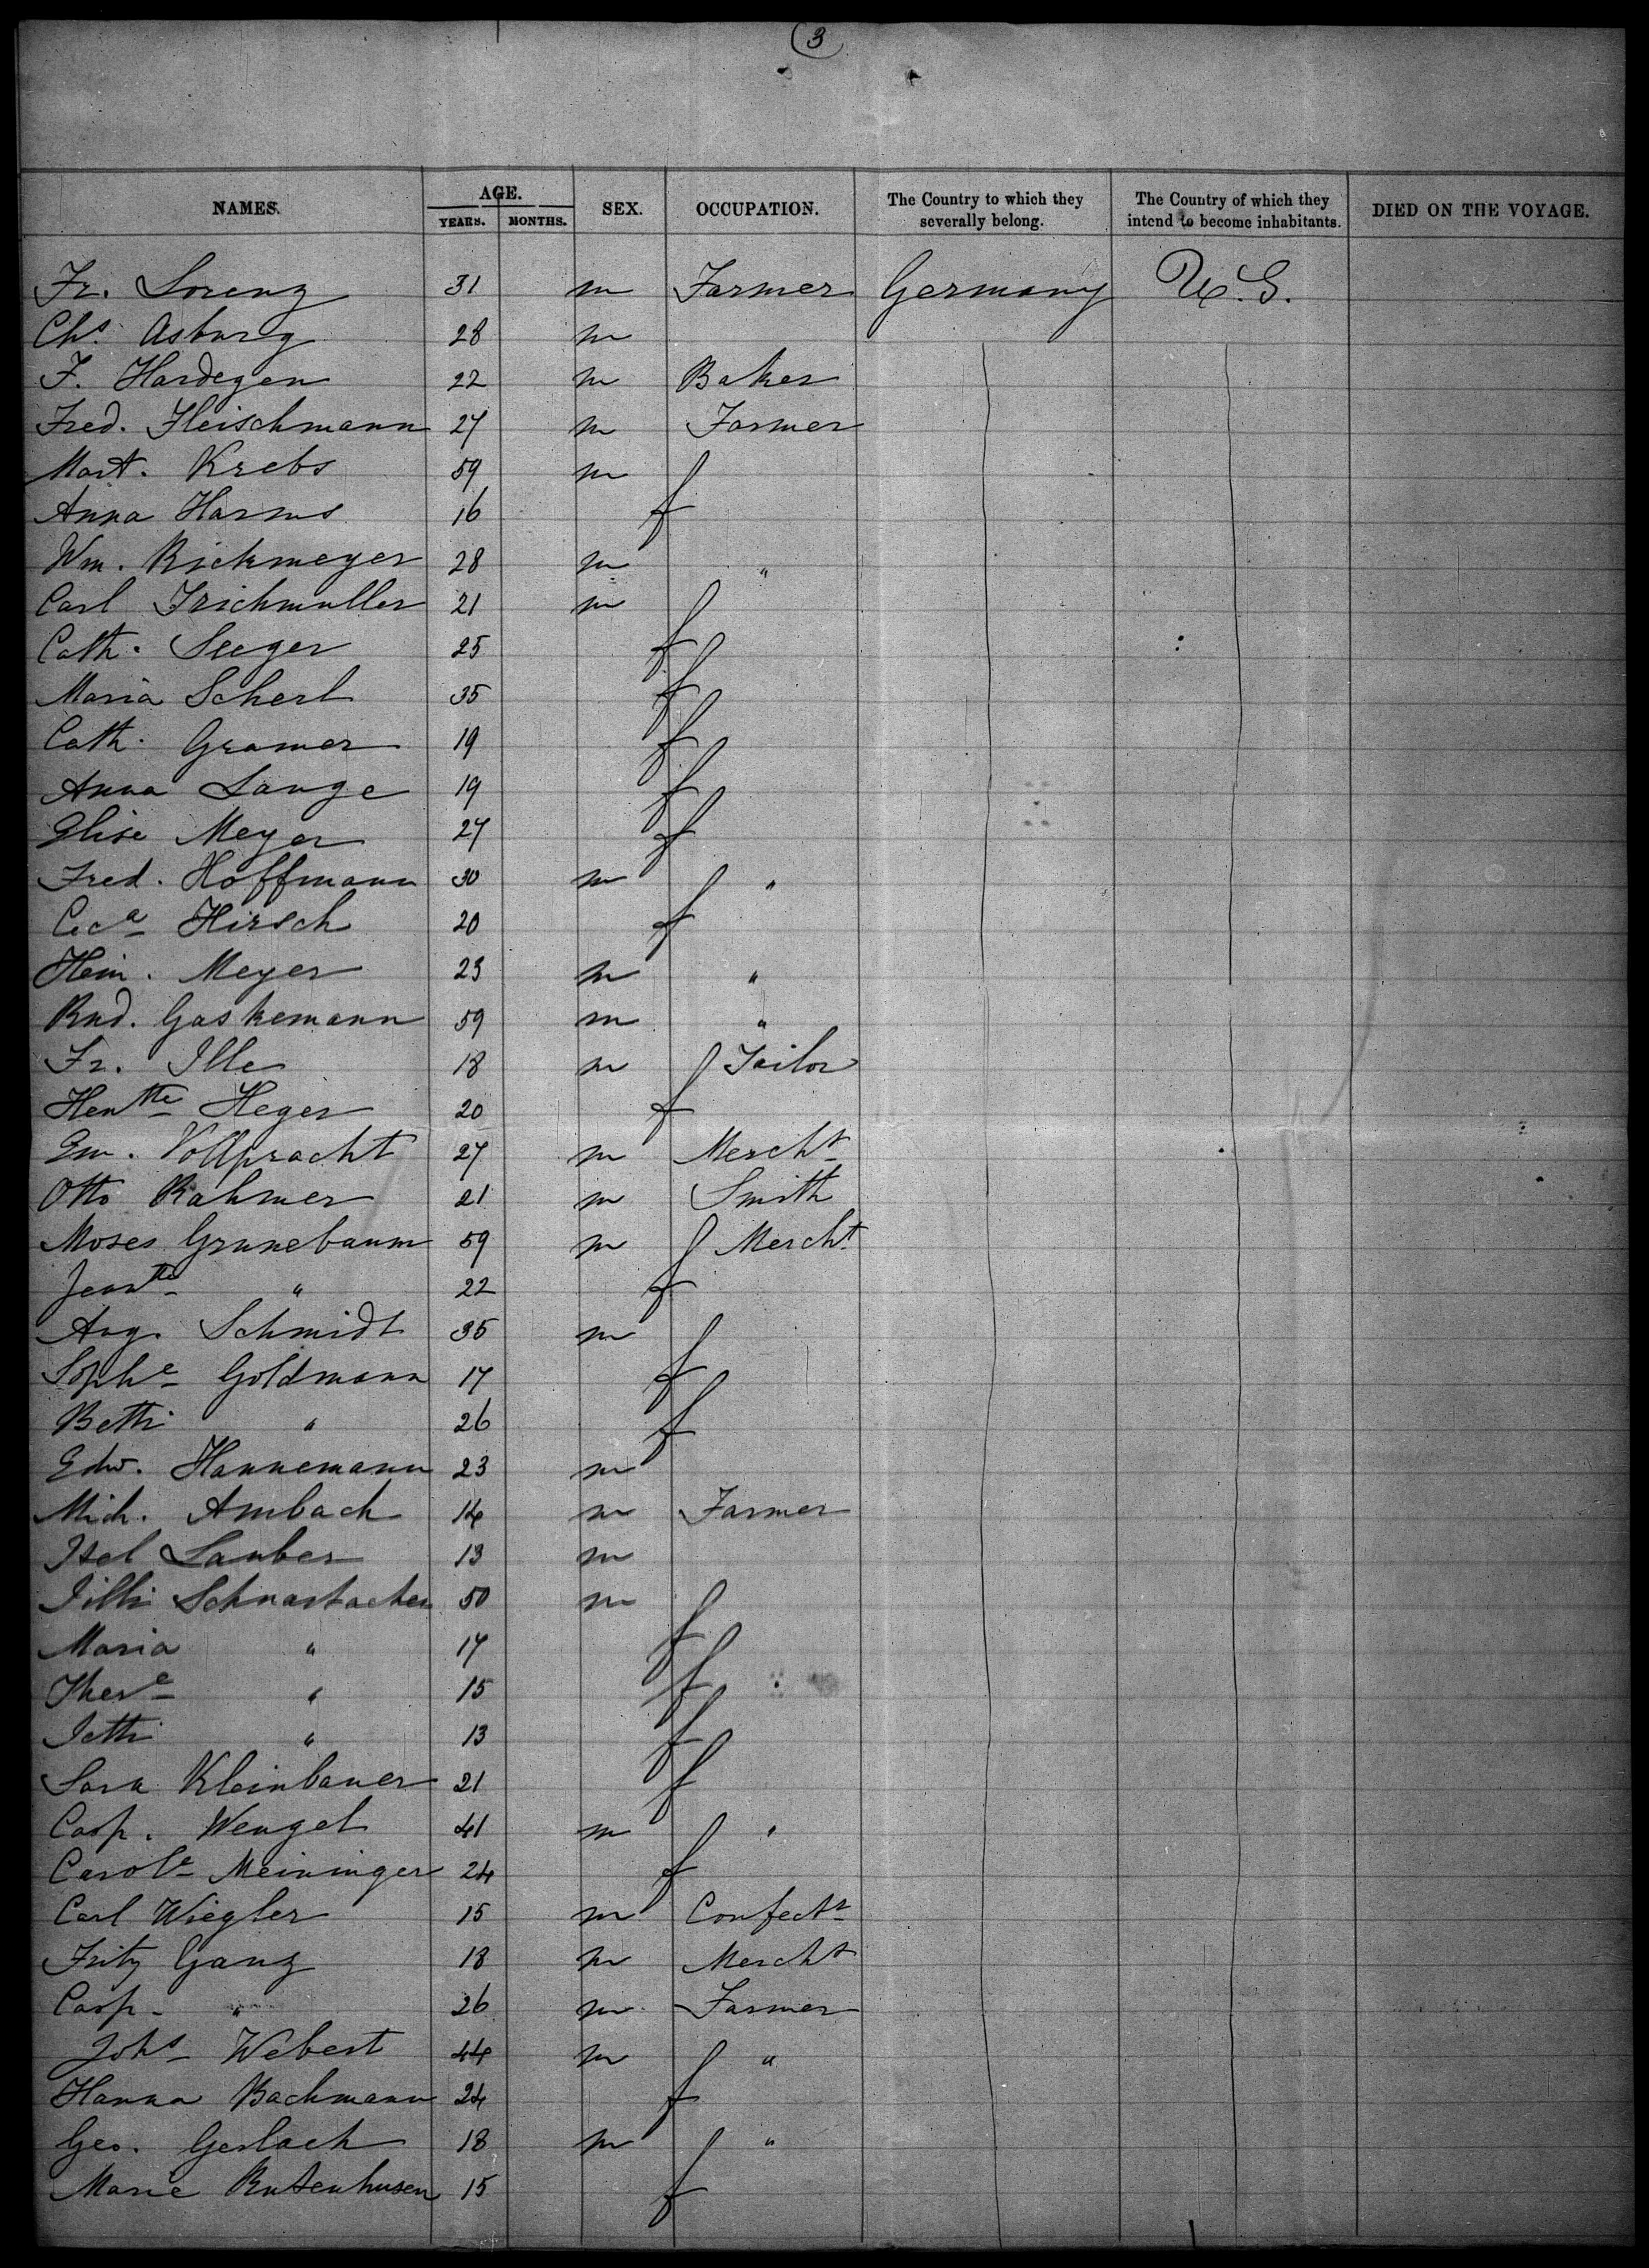 3
NAMES. AGE. YEARS. MONTHS. SEX. OCCUPATION. The Country to which they severally belong. The Country of which they intend to become inhabitants. DIED ON THE VOYAGE.
Fr. Lorenz 31 m Farmer Germany U.S.
Chs. Asburg 28 m
F. Hardegen 22 m Baker
Fred. Fleischmann 27 m Farmer
Mart. Krebs 59 m
Anna Harms 16 f
Wm. Rickmeyer 28 m "
Carl Frichmuller 21 m
Cath. Seeger 25 f
Maria Scherl 35 f
Cath. Gramer 19 f
Anna Lange 19 f
Elise Meyer 27 f
Fred. Hoffmann 30 m "
Ceca Hirsch 20 f
Hein. Meyer 23 m "
Rud. Gaskemann 59 m "
Fr. Ille 18 m Tailor
Hentte Heger 20 f
Em. Vollpracht 27 m Mercht
Otto Rahmer 21 m Smith
Moses Grunebaum 59 m Mercht
Jeantte " 22 f
Aug. Schmidt 35 m
Sophe Goldmann 17 f
Betti " 26 f
Edw. Hannemann 23 m
Mich. Ambach 14 m Farmer
Isel Lauber 13 m
50 m
Maria " 17 f
There " 15 f
Jetti " 13 f
Sara Kleinbauer 21 f
Casp. Wengel 41 m "
Carole Meininger 24 f
Carl Wiegler 15 m Confectr
Fritz Ganz 18 m Mercht
Casp. " 26 m Farmer
Johs Webert 44 m "
Hanna Bachmann 24 f
Geo. Gerlach 18 m "
Marie 15 f